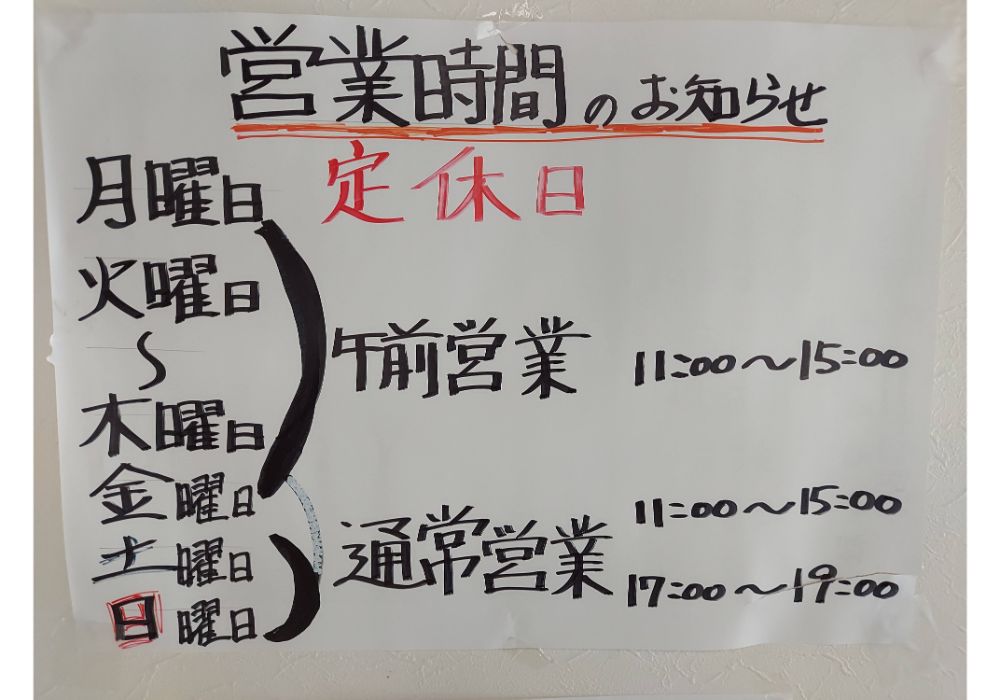 営業時間のお知らせ
月曜日 定休日
火曜日
〜
木曜日
午前営業 11:00〜15:00
金曜日
土曜日
日曜日
通常営業 11:00〜15:00
17:00〜19:00